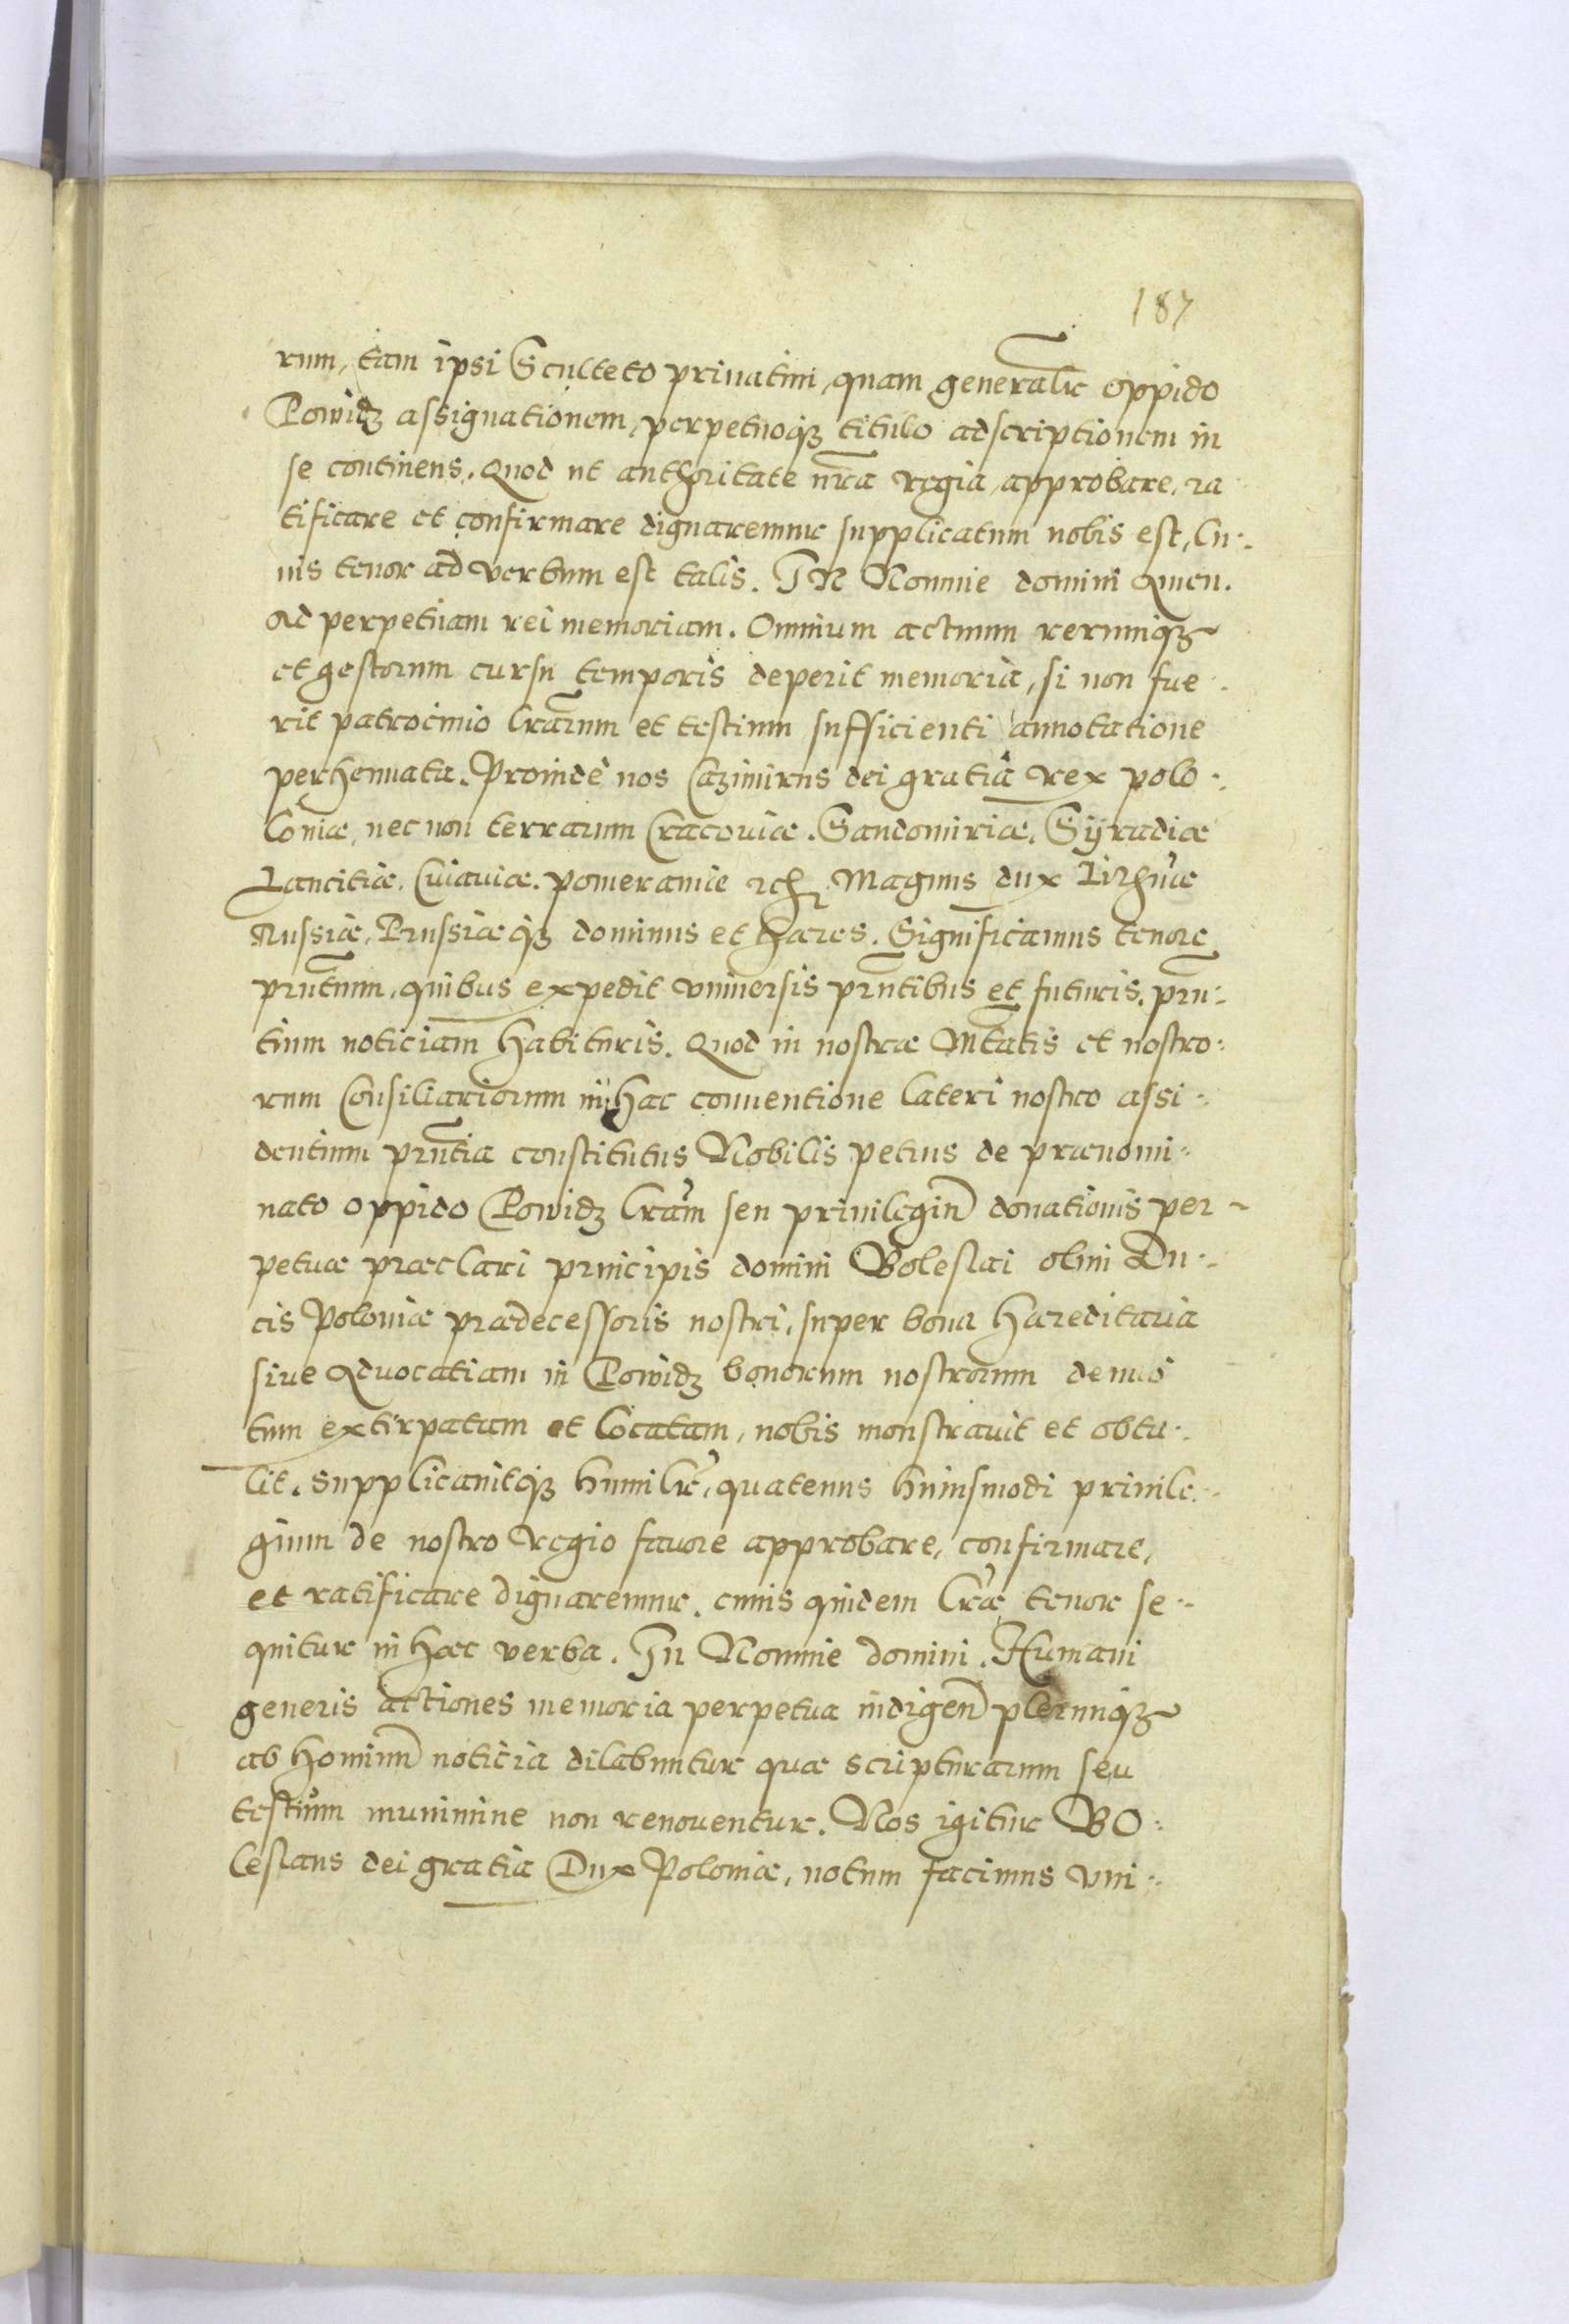 187
rum, tam ipsi Sculteto privatim, quam generalr oppido
Powidz assignationem, perpetuoq3 titulo adscriptionem in
se continens. Quod ut authoritate nra regia approbare, ra
tificare et confirmare dignaremur supplicatum nobis est, Cu-
ius tenor ad verbum est talis. IN Nomine domini Amen.
Ad perpetuam rei memoriam. Omnium actuum rerumq3
et gestorum cursu temporis deperit memoria, si non fue-
rit patrocinio lrarum et testium sufficienti annotatione
perhennata. Proinde nos Cazimirus dei gratia rex polo-
loniæ, nec non terrarum Cracoviæ. Sandomiriæ, Syradiæ
Lancitiæ. Cuiaviæ. pomeraniæ etc. Magnus dux Lithuæ
Russiæ, Prussiæq3 dominus et hæres. Significamus tenore
pruntium, quibus expedit universis pruntibus et futuris. prn-
tium noticiam habituris. Quod in nostræ Mtatis et nostro-
rum Consiliariorum in hac conventione lateri nostro assi-
dentium pruntia constitutus Nobilis petrus de prænomi-
nato oppido Powidz lram seu privilegiu donationis per-
petuæ præclari principis domini Boleslai olim Du-
cis Poloniæ prædecessoris nostri, super bona hæreditaria
sive Advocatiam in Powidz bonorum nostrorum
tum extirpatum et locatam, nobis monstravit et obtu-
lit. Supplicavitq3 humilr, quatenus huiusmodi privile-
gium de nostro regio favore approbare, confirmare,
et ratificare dignaremur. cuius quidem lræ tenor se-
quitur in hæc verba. In Nomine domini. Humani
generis actiones memoria perpetua indigen plerumq3
ab hominu noticia dilabuntur quæ scripturarum seu
testium munimine non renoventur. Nos igitur BO-
leslaus dei gratia Dux Poloniæ, notum facimus uni-